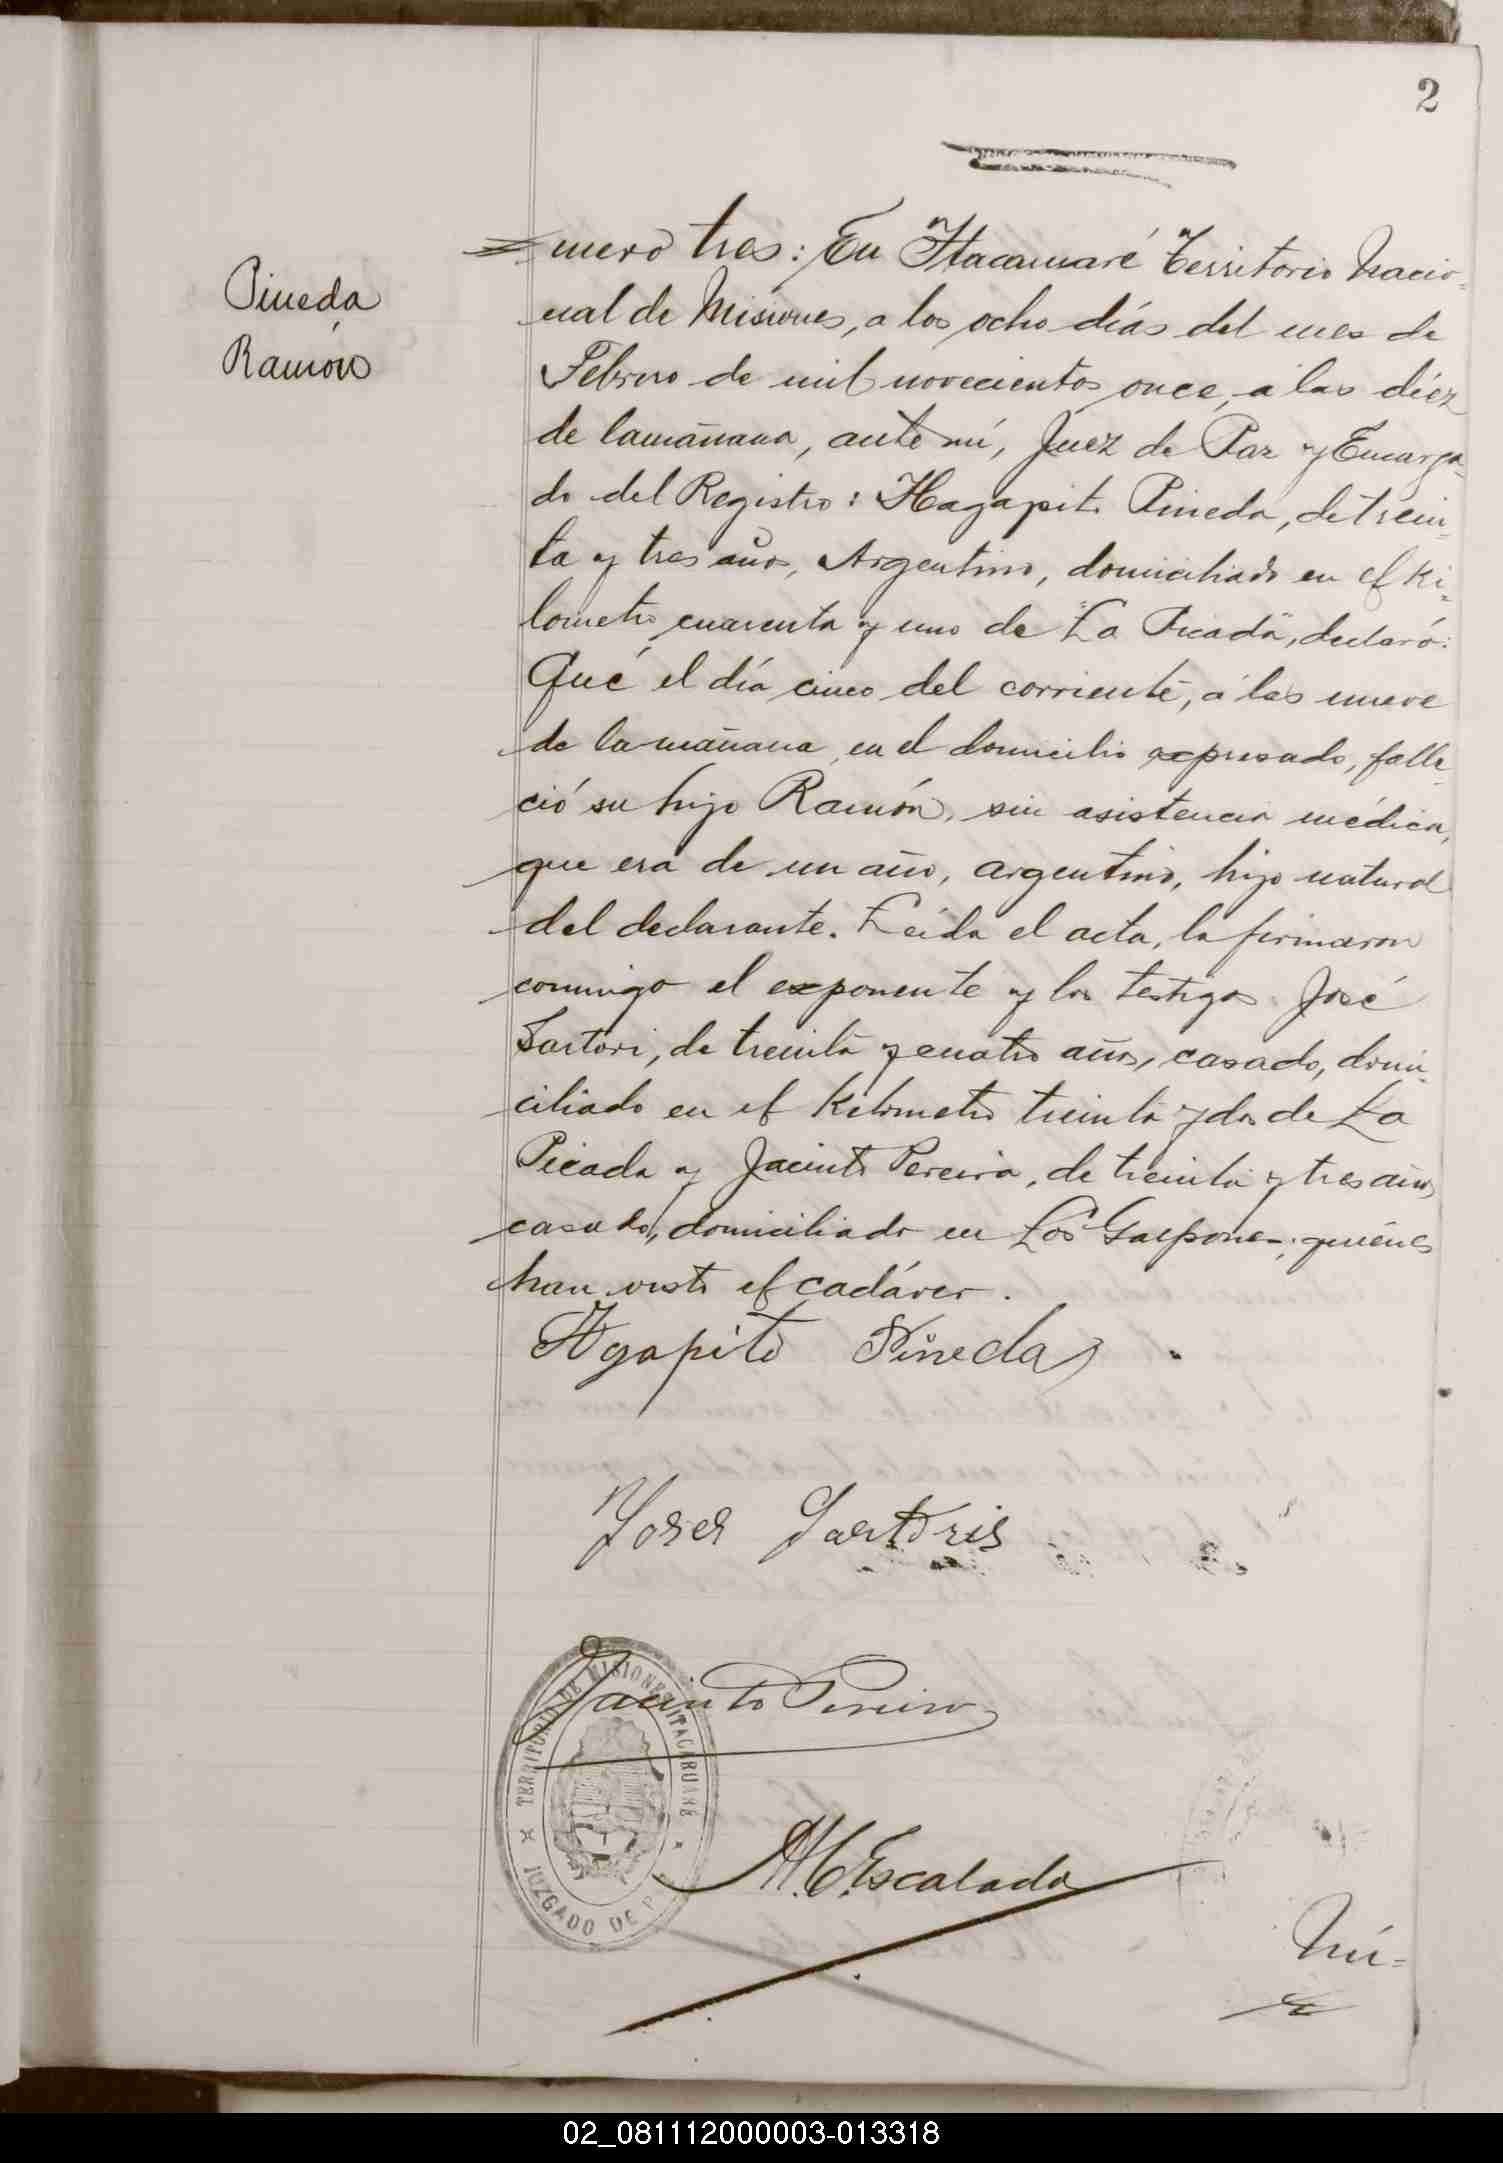 2
Pineda
Ramón
=mero tres: En Itacaruaré Territorio Nacio-
nal de Misiones, a los ocho días del mes de
Febrero de mil novecientos once, a las diéz
de la mañana, ante mí, Juez de Paz y Encarga-
do del Registro: Hagapito Pineda, de trein-
ta y tres años, Argentino, domiciliado en el Ki-
lometro cuarenta y uno de "La Picada", declaró:
Qué el día cinco del corriente, a las nueve
de la mañana, en el domicilio expresado, falle-
ció su hijo Ramón, sin asistencia médica,
que era de un año, argentino, hijo natural
del declarante. Leída el acta, la firmaron
conmigo el exponente y los testigos José
Sartori, de treinta y cuatro años, casado, domi-
ciliado en el Kilometro treinta y dos de La
Picada y Jacinto Pereira, de treinta y tres años,
casado, domiciliado en Los Galpones; quiénes
han visto el cadáver.
Agapito Pineda
Jose Sartoris
Jacinto Pereira
TERRITORIO DE MISIONES ITACARUARÉ
JUZGADO DE P
A.C. Escalada
Nú=
02_081112000003-013318